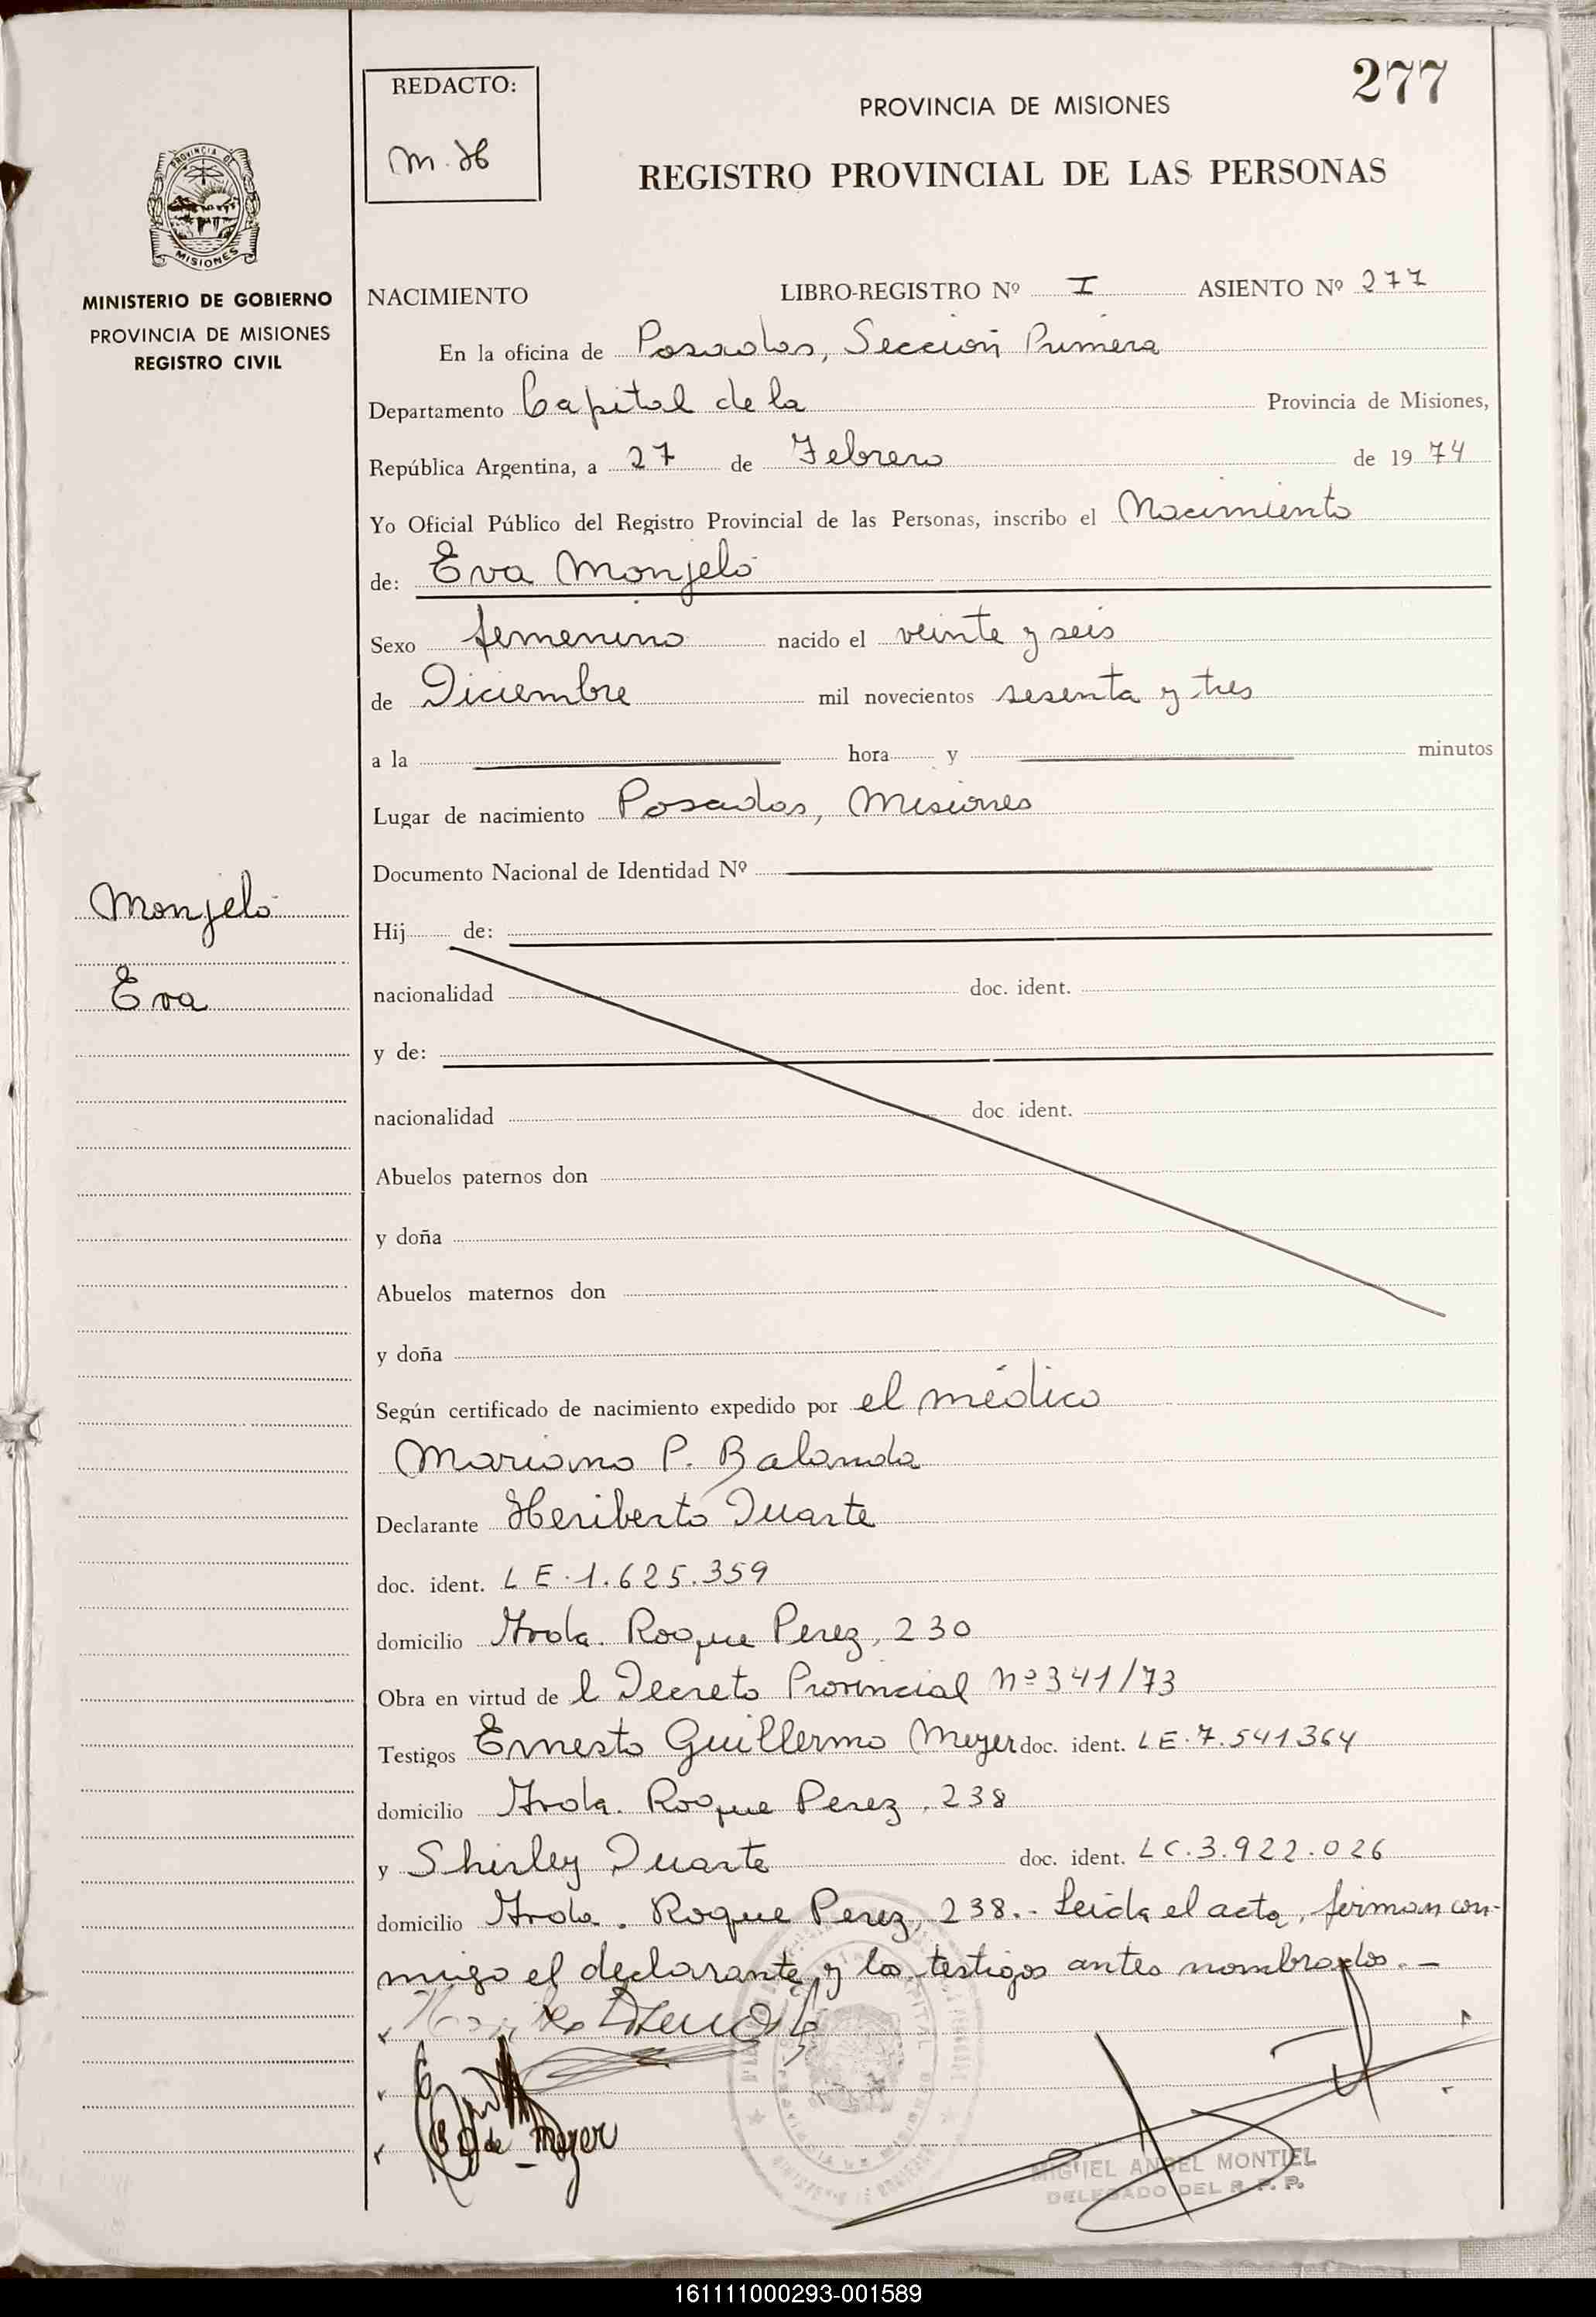 277
REDACTO:
M. H
PROVINCIA DE MISIONES
REGISTRO PROVINCIAL DE LAS PERSONAS
PROVINCIA DE
MISIONES
MINISTERIO DE GOBIERNO
PROVINCIA DE MISIONES
REGISTRO CIVIL
NACIMIENTO LIBRO-REGISTRO Nº I ASIENTO Nº 277
En la oficina de Posadas, Sección Primera
Departamento Capital de la Provincia de Misiones,
República Argentina, a 27 de Febrero de 1974
Yo Oficial Público del Registro Provincial de las Personas, inscribo el Nacimiento
de: Eva Monjeló
Sexo femenino nacido el veinte y seis
de Diciembre mil novecientos sesenta y tres
a la hora y minutos
Lugar de nacimiento Posadas, Misiones
Documento Nacional de Identidad Nº
Monjeló
Eva
Hij de:
nacionalidad doc. ident.
y de:
nacionalidad doc. ident.
Abuelos paternos don
y doña
Abuelos maternos don
y doña
Según certificado de nacimiento expedido por el médico
Mariano P. Balanda
Declarante Heriberto Duarte
doc. ident. L E. 1.625.359
domicilio Avda. Roque Perez, 230
Obra en virtud de l Decreto Provincial nº 341/73
Testigos Ernesto Guillermo Meyer doc. ident. LE. 7.541364
domicilio Avda. Roque Perez, 238
y Shirley Duarte doc. ident. LC. 3.922.026
domicilio Avda. Roque Perez, 238.- Leida el acta, firman con-
migo el declarante y los testigos antes nombrados.-
de Meyer
MIGUEL ANGEL MONTIEL
DELEGADO DEL R. P. P.
161111000293-001589